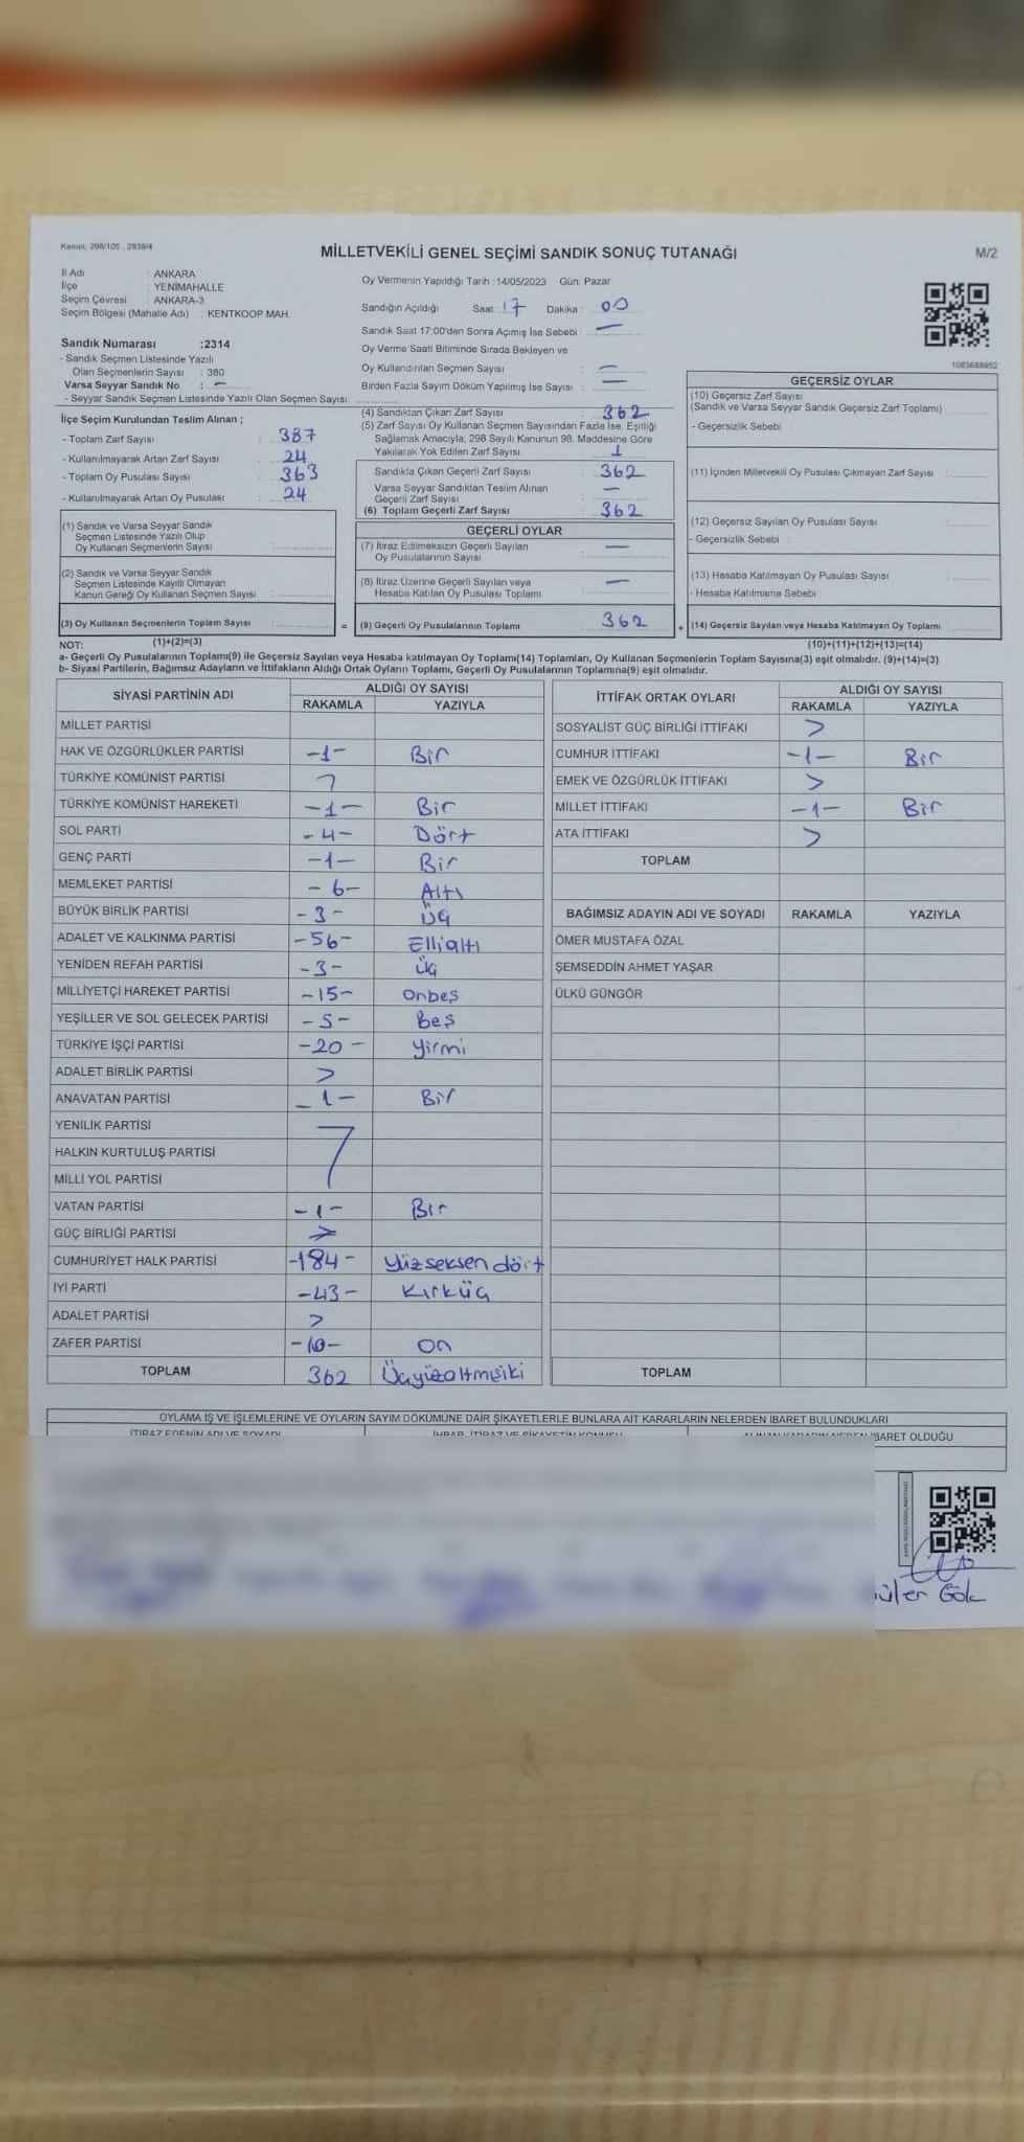 Kanun: 298/105 , 2839/4
MİLLETVEKİLİ GENEL SEÇİMİ SANDIK SONUÇ TUTANAĞI
M/2
İl Adı : ANKARA
İlçe : YENİMAHALLE
Seçim Çevresi : ANKARA-3
Seçim Bölgesi (Mahalle Adı) : KENTKOOP MAH.
Oy Vermenin Yapıldığı Tarih :14/05/2023 Gün: Pazar
Sandığın Açıldığı Saat : 17 Dakika : 00
Sandık Saat 17:00'den Sonra Açımış İse Sebebi : —
Oy Verme Saati Bitiminde Sırada Bekleyen ve
Oy Kullandırılan Seçmen Sayısı : —
Birden Fazla Sayım Döküm Yapılmış İse Sayısı : —
Sandık Numarası :2314
- Sandık Seçmen Listesinde Yazılı
Olan Seçmenlerin Sayısı : 380
Varsa Seyyar Sandık No : —
- Seyyar Sandık Seçmen Listesinde Yazılı Olan Seçmen Sayısı:
İlçe Seçim Kurulundan Teslim Alınan ;
- Toplam Zarf Sayısı : 387
- Kullanılmayarak Artan Zarf Sayısı : 24
- Toplam Oy Pusulası Sayısı : 363
- Kullanılmayarak Artan Oy Pusulası : 24
(1) Sandık ve Varsa Seyyar Sandık
Seçmen Listesinde Yazılı Olup
Oy Kullanan Seçmenlerin Sayısı :
(2) Sandık ve Varsa Seyyar Sandık
Seçmen Listesinde Kayıtlı Olmayan
Kanun Gereği Oy Kullanan Seçmen Sayısı :
(3) Oy Kullanan Seçmenlerin Toplam Sayısı :
(1)+(2)=(3)
(4) Sandıktan Çıkan Zarf Sayısı : 362
(5) Zarf Sayısı Oy Kullanan Seçmen Sayısından Fazla İse, Eşitliği
Sağlamak Amacıyla, 298 Sayılı Kanunun 98. Maddesine Göre
Yakılarak Yok Edilen Zarf Sayısı : 1
Sandıkta Çıkan Geçerli Zarf Sayısı : 362
Varsa Seyyar Sandıktan Teslim Alınan
Geçerli Zarf Sayısı : —
(6) Toplam Geçerli Zarf Sayısı : 362
GEÇERLİ OYLAR
(7) İtiraz Edilmeksizin Geçerli Sayılan
Oy Pusulalarının Sayısı : —
(8) İtiraz Üzerine Geçerli Sayılan veya
Hesaba Katılan Oy Pusulası Toplamı : —
= (9) Geçerli Oy Pusulalarının Toplamı : 362 +
1083688952
GEÇERSİZ OYLAR
(10) Geçersiz Zarf Sayısı
(Sandık ve Varsa Seyyar Sandık Geçersiz Zarf Toplamı) :
- Geçersizlik Sebebi :
(11) İçinden Milletvekili Oy Pusulası Çıkmayan Zarf Sayısı :
(12) Geçersiz Sayılan Oy Pusulası Sayısı :
- Geçersizlik Sebebi :
(13) Hesaba Katılmayan Oy Pusulası Sayısı :
- Hesaba Katılmama Sebebi :
(14) Geçersiz Sayılan veya Hesaba Katılmayan Oy Toplamı :
(10)+(11)+(12)+(13)=(14)
NOT:
a- Geçerli Oy Pusulalarının Toplamı(9) ile Geçersiz Sayılan veya Hesaba katılmayan Oy Toplamı(14) Toplamları, Oy Kullanan Seçmenlerin Toplam Sayısına(3) eşit olmalıdır. (9)+(14)=(3)
b- Siyasi Partilerin, Bağımsız Adayların ve İttifakların Aldığı Ortak Oyların Toplamı, Geçerli Oy Pusulalarının Toplamına(9) eşit olmalıdır.
SİYASİ PARTİNİN ADI ALDIĞI OY SAYISI
RAKAMLA YAZIYLA
MİLLET PARTİSİ
HAK VE ÖZGÜRLÜKLER PARTİSİ -1- Bir
TÜRKİYE KOMÜNİST PARTİSİ
TÜRKİYE KOMÜNİST HAREKETİ -1- Bir
SOL PARTİ -4- Dört
GENÇ PARTİ -1- Bir
MEMLEKET PARTİSİ -6- Altı
BÜYÜK BİRLİK PARTİSİ -3- Üç
ADALET VE KALKINMA PARTİSİ -56- Ellialtı
YENİDEN REFAH PARTİSİ -3- Üç
MİLLİYETÇİ HAREKET PARTİSİ -15- Onbeş
YEŞİLLER VE SOL GELECEK PARTİSİ -5- Beş
TÜRKİYE İŞÇİ PARTİSİ -20- Yirmi
ADALET BİRLİK PARTİSİ
ANAVATAN PARTİSİ -1- Bir
YENİLİK PARTİSİ
HALKIN KURTULUŞ PARTİSİ
MİLLİ YOL PARTİSİ
VATAN PARTİSİ -1- Bir
GÜÇ BİRLİĞİ PARTİSİ
CUMHURİYET HALK PARTİSİ -184- Yüzseksen dört
İYİ PARTİ -43- Kırküç
ADALET PARTİSİ
ZAFER PARTİSİ -10- On
TOPLAM 362 Üçyüzaltmışiki
İTTİFAK ORTAK OYLARI ALDIĞI OY SAYISI
RAKAMLA YAZIYLA
SOSYALİST GÜÇ BİRLİĞİ İTTİFAKI
CUMHUR İTTİFAKI -1- Bir
EMEK VE ÖZGÜRLÜK İTTİFAKI
MİLLET İTTİFAKI -1- Bir
ATA İTTİFAKI
TOPLAM
BAĞIMSIZ ADAYIN ADI VE SOYADI RAKAMLA YAZIYLA
ÖMER MUSTAFA ÖZAL
ŞEMSEDDİN AHMET YAŞAR
ÜLKÜ GÜNGÖR
TOPLAM
OYLAMA İŞ VE İŞLEMLERİNE VE OYLARIN SAYIM DÖKÜMÜNE DAİR ŞİKAYETLERLE BUNLARA AİT KARARLARIN NELERDEN İBARET BULUNDUKLARI
İTİRAZ EDENİN ADI VE SOYADI İHBAR, İTİRAZ VE ŞİKAYETİN KONUSU İBARET OLDUĞU
üler Gök